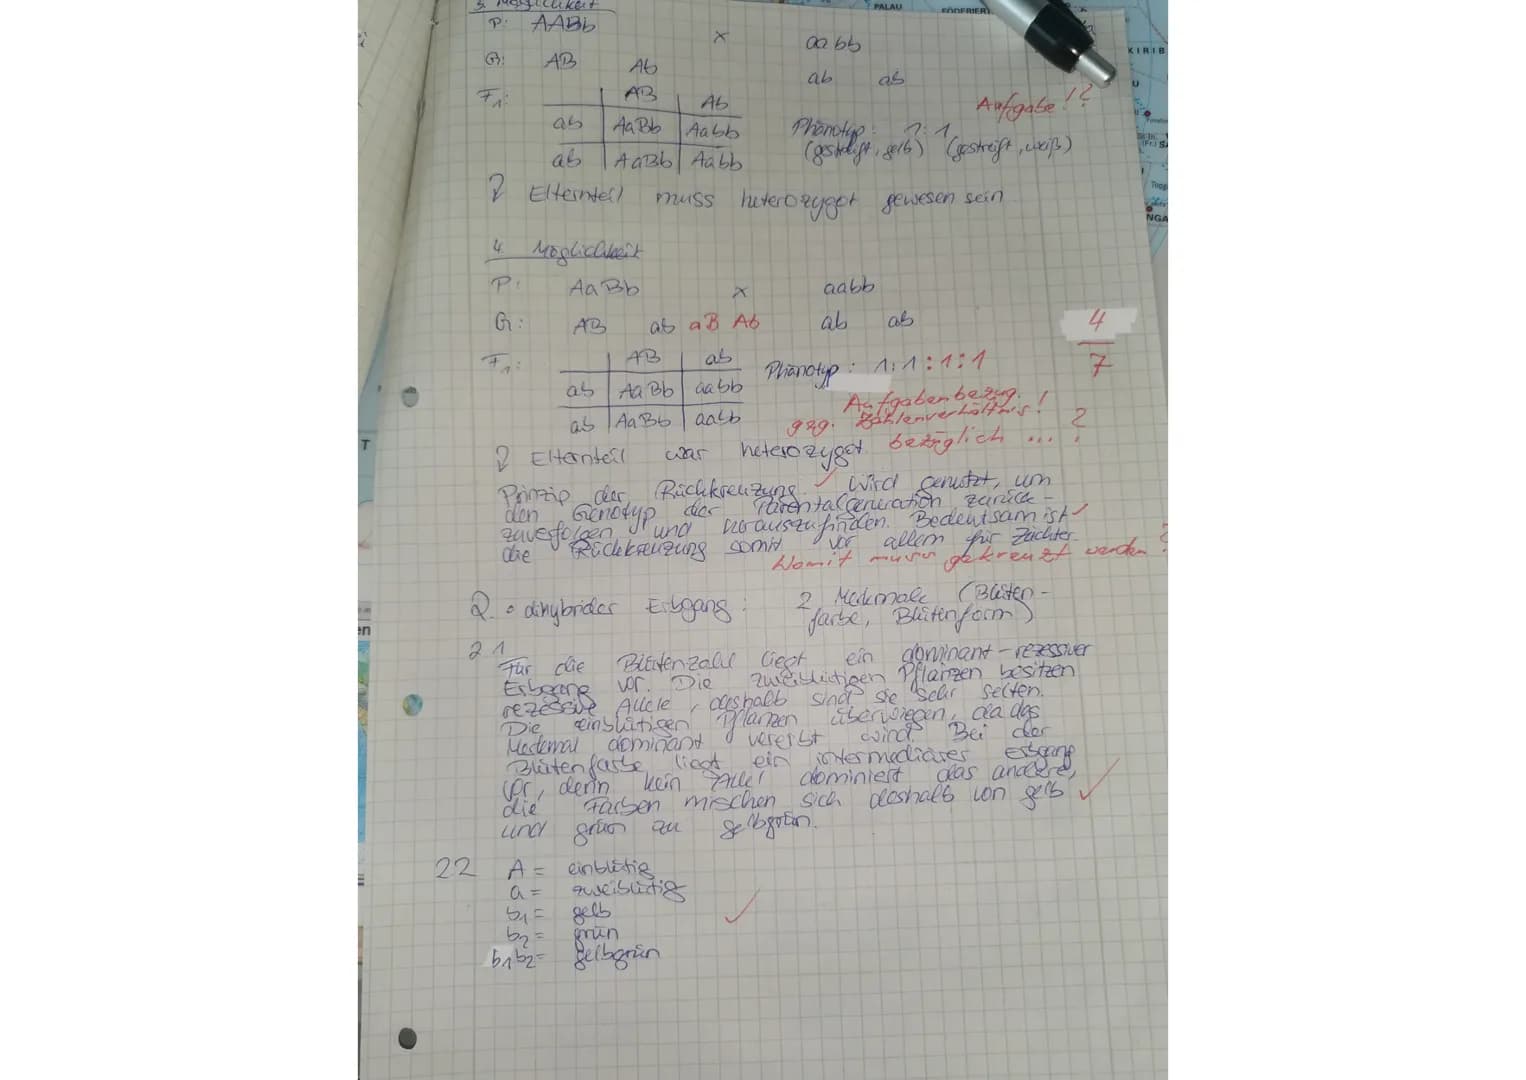 3. Möglichkeit
P: AABb x aabb
G: AB Ab ab ab
F1: AB Ab
ab AaBb Aabb
ab AaBb Aabb
Aufgabe!?
Phänotyp: 1:1
(gestreift, gelb) (gestreift, weiß)
Elternteil muss heterozygot gewesen sein
4. Möglichkeit
P: AaBb x aabb
G: AB ab aB Ab ab ab
F1: AB ab
ab AaBb aabb
ab AaBb aabb
Phänotyp: 1:1:1:1
4
7
Aufgabenbezug.
ggg. Zahlenverhältnis!
Elternteil war heterozygot bezüglich ... ?
Prinzip der Rückkreuzung ✓ wird genutzt, um
den Genotyp der Parentalgeneration zurück-
zuverfolgen und herauszufinden. Bedeutsam ist ✓
die Rückkreuzung somit vor allem für Züchter.
Womit muss gekreuzt werden?
2. • dihybrider Erbgang: 2 Merkmale (Blüten-
farbe, Blütenform)
2.1
Für die Blütenzahl liegt ein dominant-rezessiver
Erbgang vor. Die zweiblütigen Pflanzen besitzen
rezessive Allele, deshalb sind sie sehr selten.
Die einblütigen Pflanzen überwiegen, da das
Merkmal dominant vererbt wird. Bei der
Blütenfarbe liegt ein intermediäres Erbgang
vor, denn kein Allel dominiert das andere,
die Farben mischen sich deshalb von gelb ✓
und grün zu gelbgrün.
2.2 A = einblütig
a = zweiblütig
b1 = gelb ✓
b2 = grün
b1b2 = gelbgrün
PALAU
FÖDERIER
KIRIB
NGA
T
en